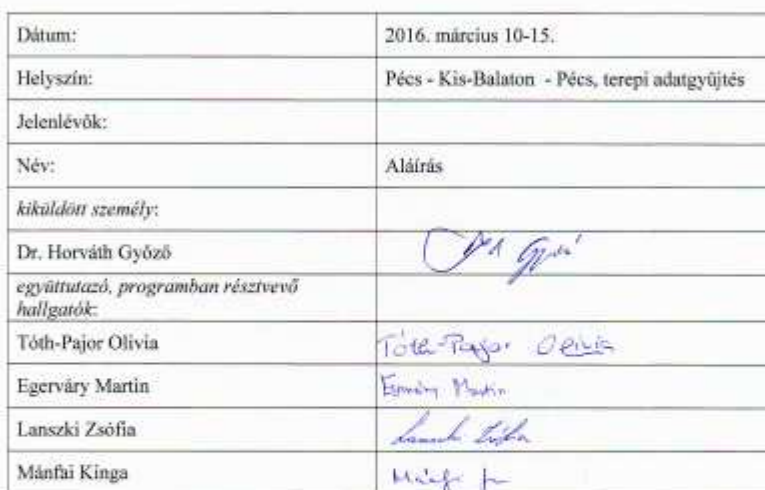 Dátum: 2016. március 10-15.
Helyszín: Pécs - Kis-Balaton - Pécs, terepi adatgyűjtés
Jelenlévők:
Név: Aláírás
kiküldött személy:
Dr. Horváth Győző
együttutazó, programban résztvevő
hallgatók:
Tóth-Pajor Olivia Tóth-Pajor Olivia
Egerváry Martin Martin
Lanszki Zsófia Lanszki Zsófia
Mánfai Kinga